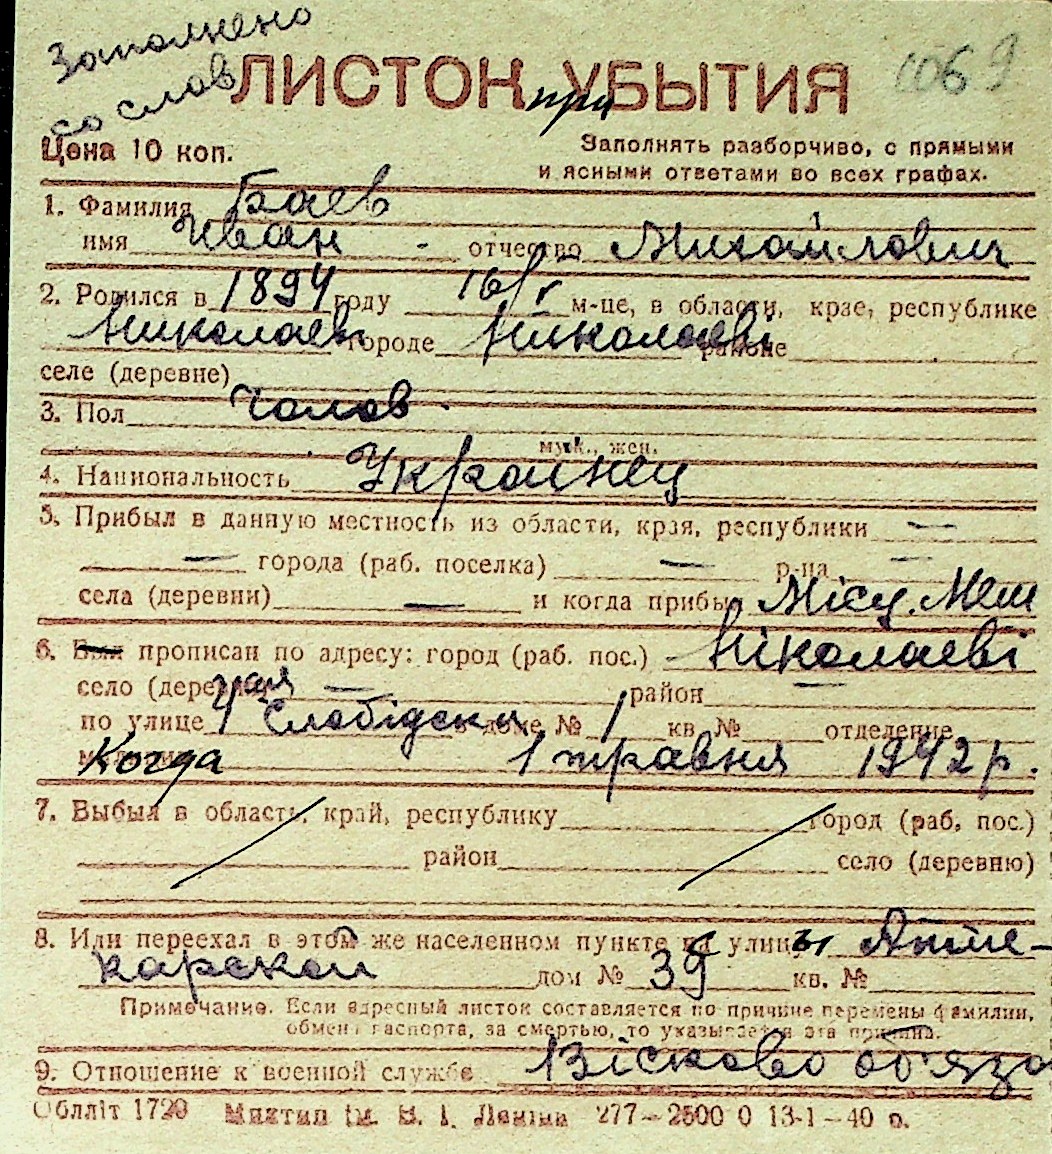 Заполнено
со слов
ЛИСТОК УБЫТИЯ
при
1069
Цена 10 коп.
Заполнять разборчиво, с прямыми
и ясными ответами во всех графах.
1. Фамилия Баев
имя Иван отчество Михайлович
2. Родился в 1894 году 16/ м-це, в области, крае, республике
Николаеві городе Николаеві районе
селе (деревне)
3. Пол чолов.
муж., жен.
4. Национальность Украинец
5. Прибыл в данную местность из области, края, республики —
— города (раб. поселка) — р-на —
села (деревни) — и когда прибыл Місц. Меш
6. Был прописан по адресу: город (раб. пос.) Ніколаеві
село (деревня) — район —
по улице 4 Слобідска доме № 1 кв. № отделение
Когда 1 травня 1942 р.
7. Выбыл в область, край, республику город (раб. пос.)
район село (деревню)
8. Или переехал в этом же населенном пункте с улицы Аптe-
карской дом № 39 кв. №
Примечание. Если адресный листок составляется по причине перемены фамилии,
обмена паспорта, за смертью, то указывается эта причина.
9. Отношение к военной службе Вісково об'язо
Облліт 1720 Миктип ім. В. І. Леніна 277—2500 0 13-1—40 р.